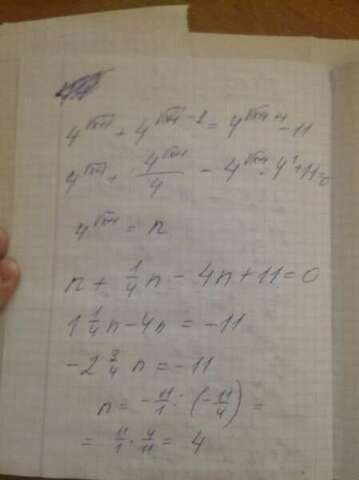 4^√(x+1) + 4^(√(x+1) - 1) = 4^(√(x+1) + 1) - 11
4^√(x+1) + 4^√(x+1)/4 - 4^√(x+1) · 4^1 + 11 = 0
4^√(x+1) = n
n + 1/4 n - 4n + 11 = 0
1 1/4 n - 4n = -11
-2 3/4 n = -11
n = -11/1 : (-11/4) =
= 11/1 · 4/11 = 4